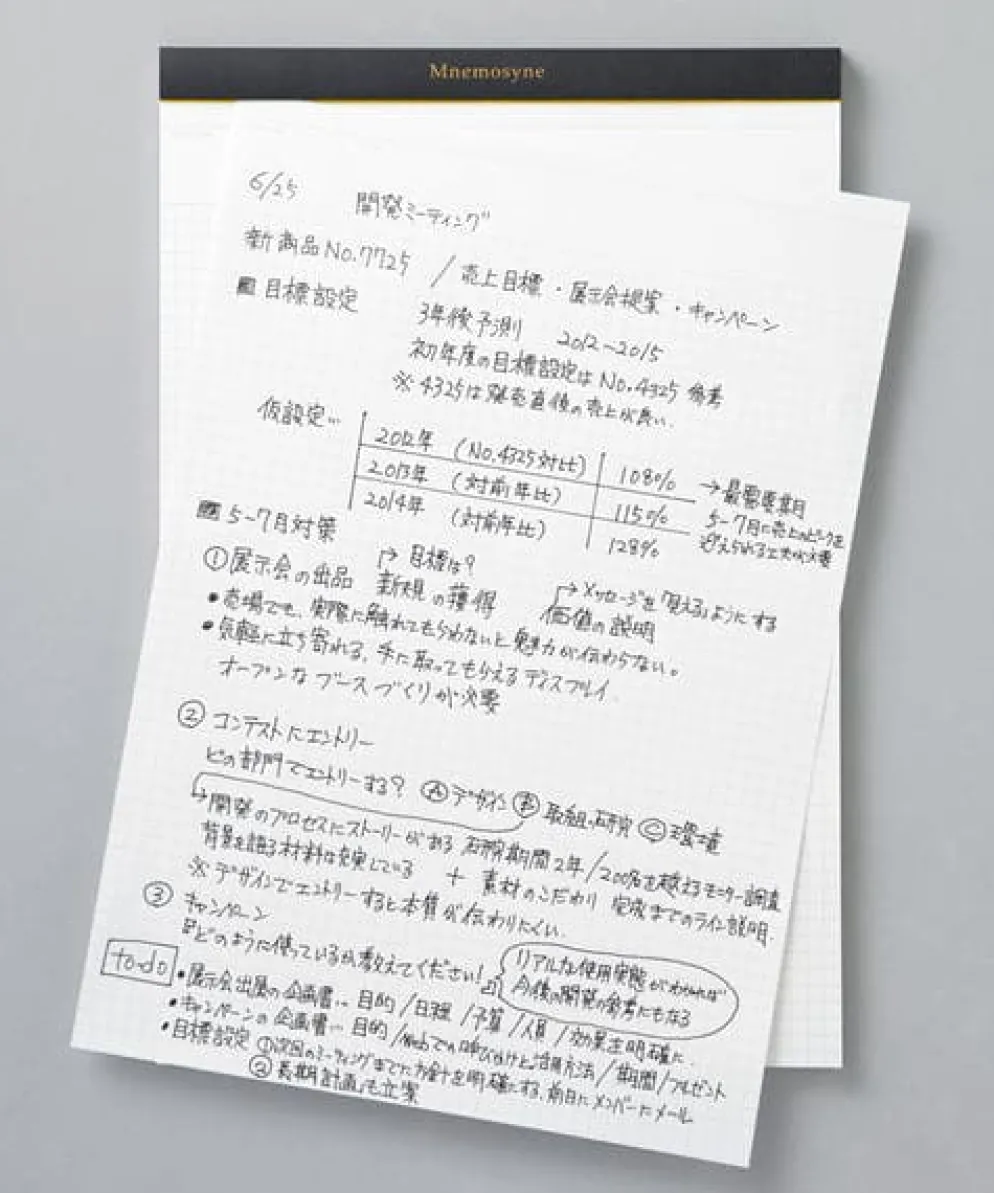 Mnemosyne
6/25 開発ミーティング
新商品No.7725 / 売上目標・展示会提案・キャンペーン
■ 目標設定
3年後予測 2012〜2015
初年度の目標設定は No.4325 参考
※4325は発売直後の売上が良い.
仮設定…
2012年 (No.4325対比) 108% → 最需要期
2013年 (対前年比) 115% 5-7月に売上のピークを
2014年 (対前年比) 128% 迎えられる工夫が必要
■ 5-7月対策
→目標は?
① 展示会の出品 新規の獲得 価値の説明 →メッセージを「見える」ようにする
• 売場でも、実際に触れてもらわないと魅力が伝わらない。
• 気軽に立ち寄れる、手に取ってもらえるディスプレイ
オープンなブースづくりが必要
② コンテストにエントリー
どの部門でエントリーする? Ⓐデザイン Ⓑ取組・研究 Ⓒ環境
→開発のプロセスにストーリーがある 研究期間2年/200名を越えるモニター調査
背景を語る材料は充実している + 素材のこだわり 完成までのライン説明.
※ デザインでエントリーすると本質が伝わりにくい.
③ キャンペーン
『どのように使っているか教えてください!』
リアルな使用実態がわかれば
今後の開発の参考にもなる
to-do
• 展示会出展の企画書… 目的/日程/予算/人員/効果を明確に.
• キャンペーンの企画書… 目的/Webでの呼びかけと活用方法/期間/プレゼント
• 目標設定 ①次回のミーティングまでに方針を明確にする、前日にメンバーにメール
② 長期計画も立案